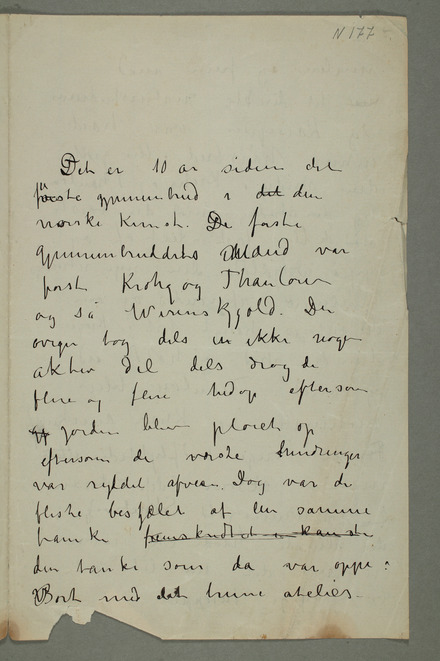 N 177
Det er 10 år siden det
første gjennembrud i det den
norske kunst. De første
gjennembruddets Mænd var
først Krohg og Thaulow
og så Werenskjold. De
øvrige tog dels en ikke nogen
aktiv del dels drog de
flere og flere hidop eftersom
jorden blev pløiet op
eftersom de værste hindringer
var ryddet afveien. Dog var de
fleste besjælet af den samme
tanke
den tanke som da var oppe:
Bort med det brune atelier-